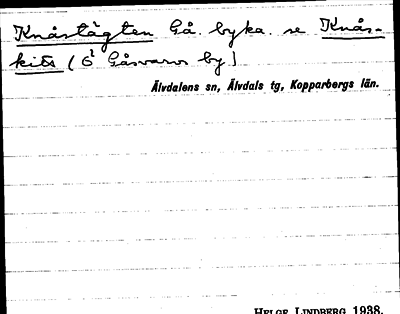 Knåstägten Gå. byka. se Knås-
kits (6² Gåsvarvs by)
Älvdalens sn, Älvdals tg, Kopparbergs län.
HELGE LINDBERG 1938.